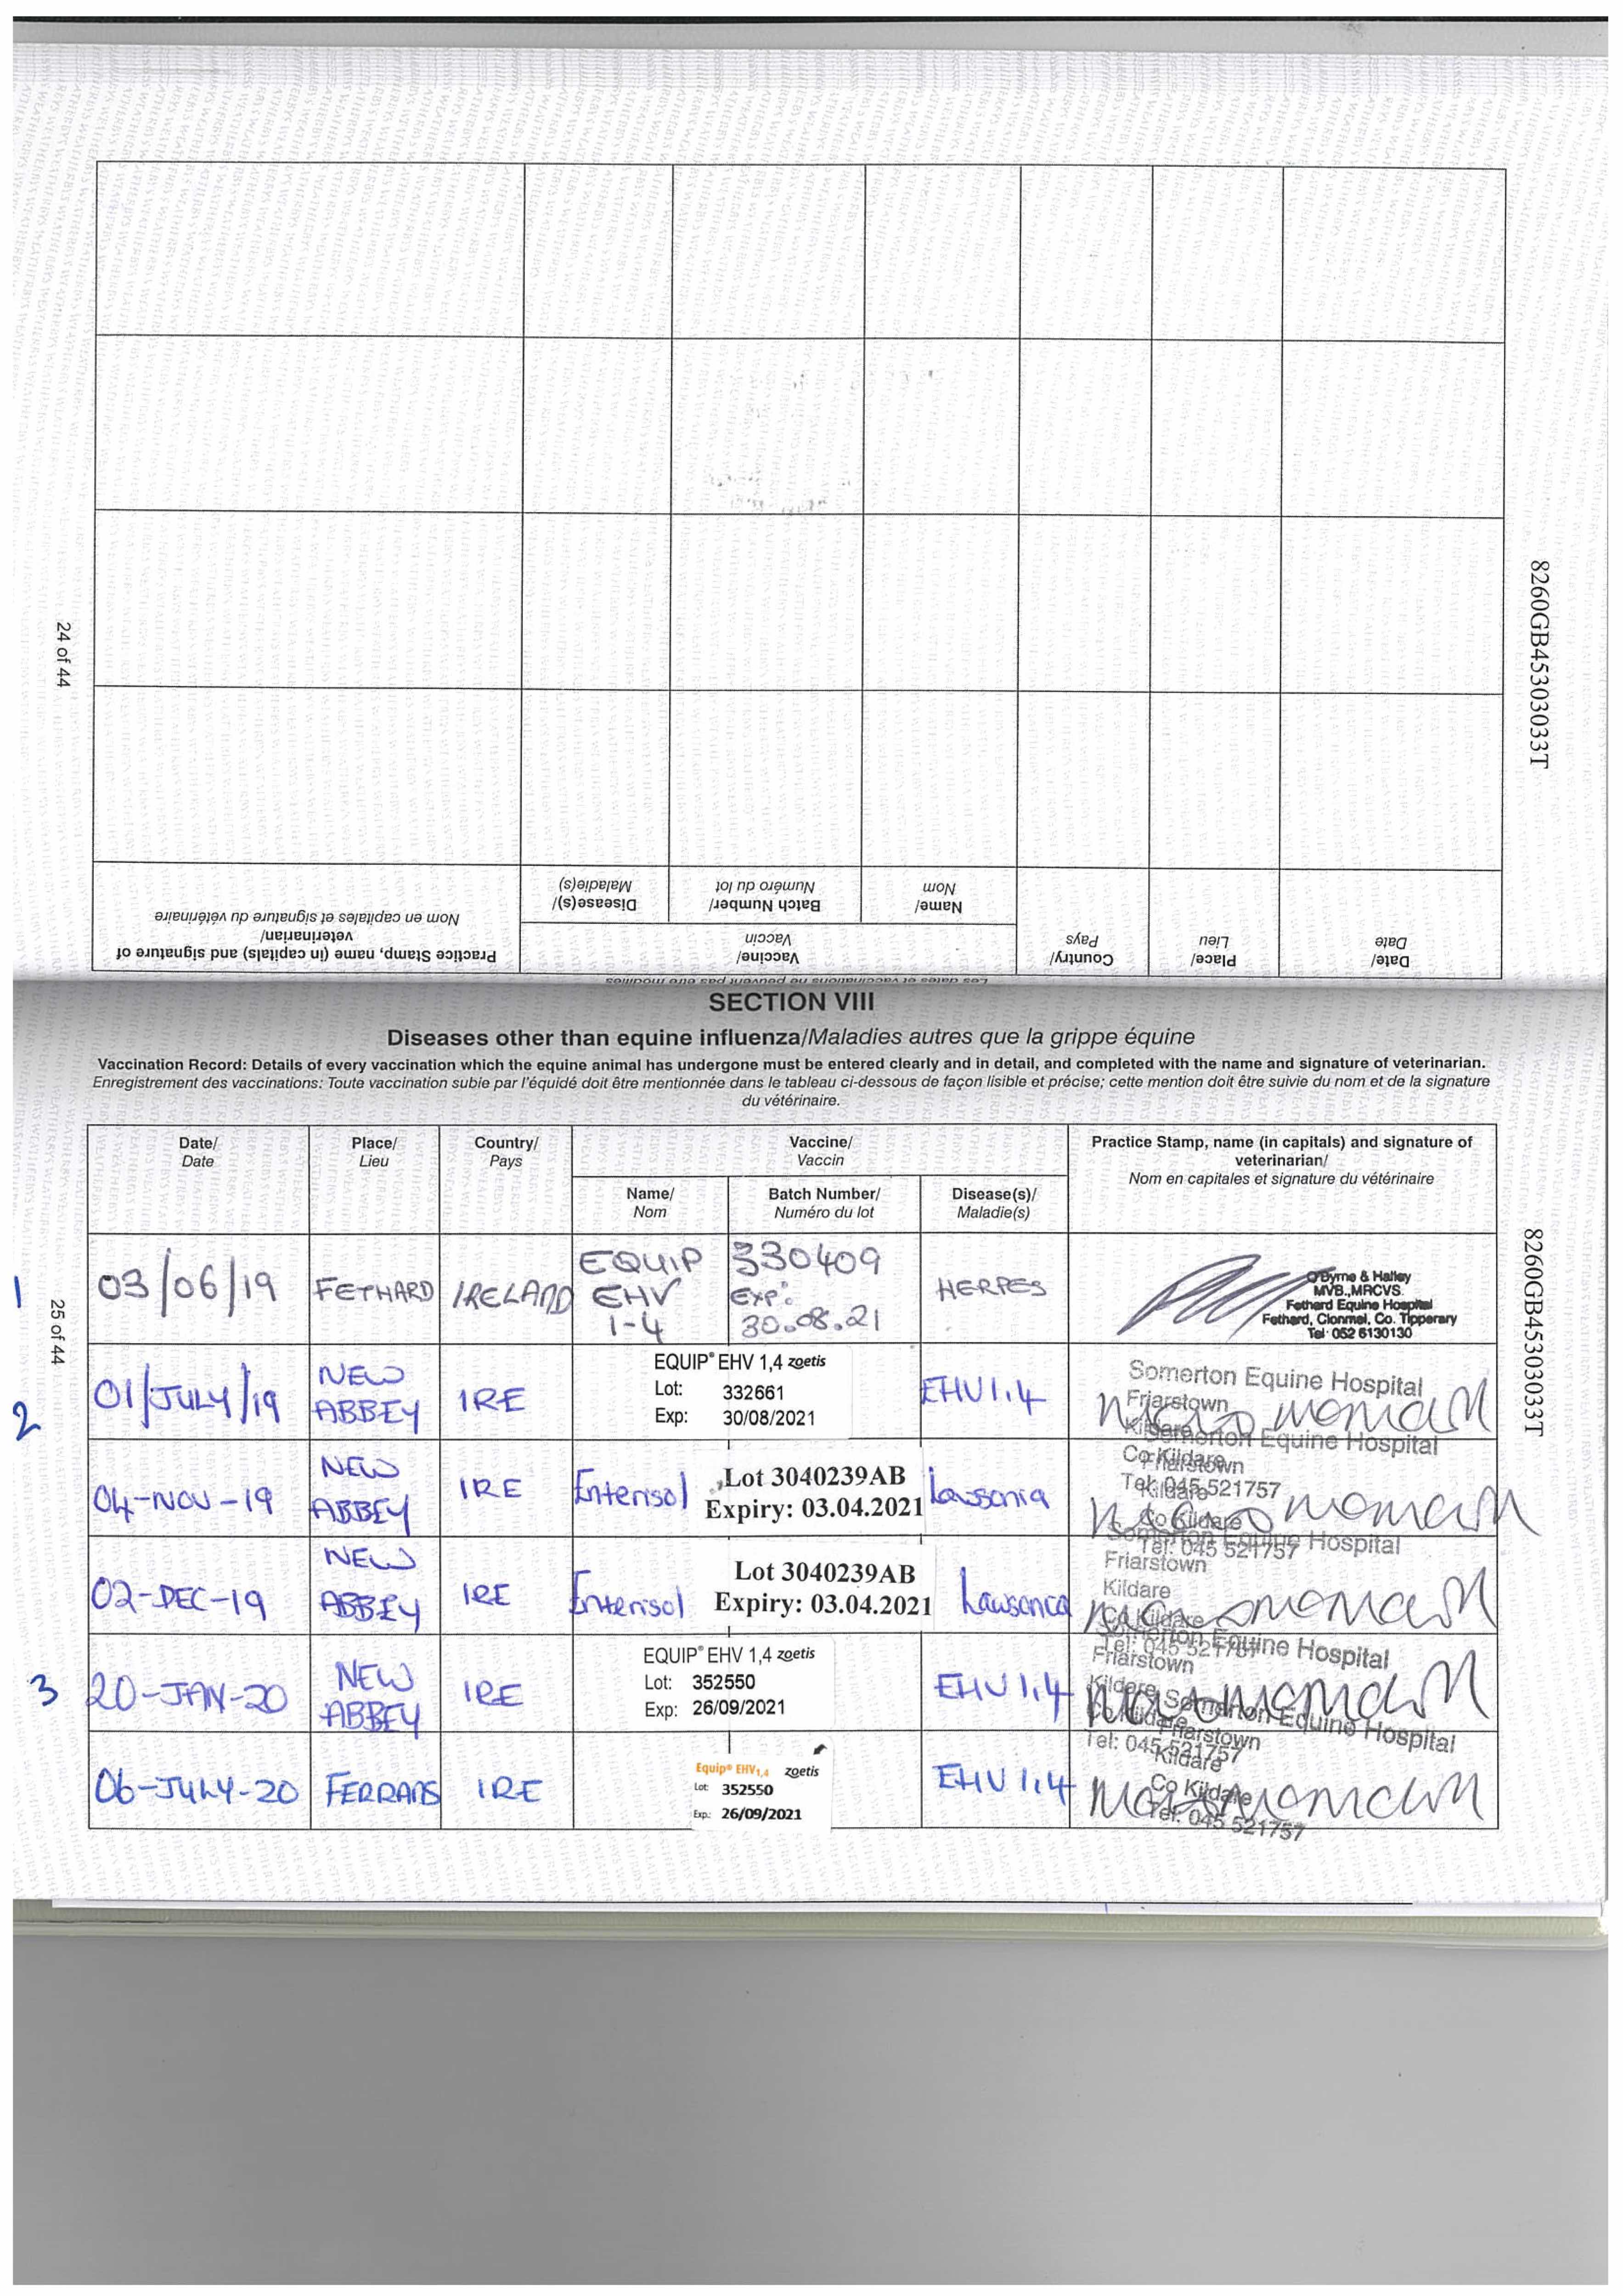 24 of 44
8260GB45303033T
Practice Stamp, name (in capitals) and signature of
veterinarian/
Nom en capitales et signature du vétérinaire
Vaccine/
Vaccin
Disease(s)/
Maladie(s)
Batch Number/
Numéro du lot
Name/
Nom
Country/
Pays
Place/
Lieu
Date/
Date
Les dates et vaccinations ne peuvent pas être modifiés
SECTION VIII
Diseases other than equine influenza/Maladies autres que la grippe équine
Vaccination Record: Details of every vaccination which the equine animal has undergone must be entered clearly and in detail, and completed with the name and signature of veterinarian.
Enregistrement des vaccinations: Toute vaccination subie par l'équidé doit être mentionnée dans le tableau ci-dessous de façon lisible et précise; cette mention doit être suivie du nom et de la signature
du vétérinaire.
Date/
Date
Place/
Lieu
Country/
Pays
Vaccine/
Vaccin
Name/
Nom
Batch Number/
Numéro du lot
Disease(s)/
Maladie(s)
Practice Stamp, name (in capitals) and signature of
veterinarian/
Nom en capitales et signature du vétérinaire
25 of 44
8260GB45303033T
1
03/06/19
FETHARD
IRELAND
EQUIP
EHV
1-4
330409
EXP:
30.08.21
HERPES
O'Byrne & Halley
MVB.,MRCVS.
Fethard Equine Hospital
Fethard, Clonmel, Co. Tipperary
Tel: 052 6130130
2
01/JULY/19
NEW
ABBEY
IRE
EQUIP® EHV 1,4 zoetis
Lot: 332661
Exp: 30/08/2021
EHV 1.4
Somerton Equine Hospital
Friarstown
Kildare
Co Kildare
Tel: 045 521757
04-NOV-19
NEW
ABBEY
IRE
Enterisol
Lot 3040239AB
Expiry: 03.04.2021
Lawsonia
Somerton Equine Hospital
Friarstown
Kildare
Co Kildare
Tel: 045 521757
02-DEC-19
NEW
ABBEY
IRE
Enterisol
Lot 3040239AB
Expiry: 03.04.2021
Lawsonca
Somerton Equine Hospital
Friarstown
Kildare
Co Kildare
Tel: 045 521757
3
20-JAN-20
NEW
ABBEY
IRE
EQUIP® EHV 1,4 zoetis
Lot: 352550
Exp: 26/09/2021
EHV 1.4
Somerton Equine Hospital
Friarstown
Kildare
Co Kildare
Tel: 045 521757
06-JULY-20
FERRANS
IRE
Equip® EHV1,4 zoetis
Lot: 352550
Exp.: 26/09/2021
EHV 1.4
Somerton Equine Hospital
Friarstown
Kildare
Co Kildare
Tel: 045 521757